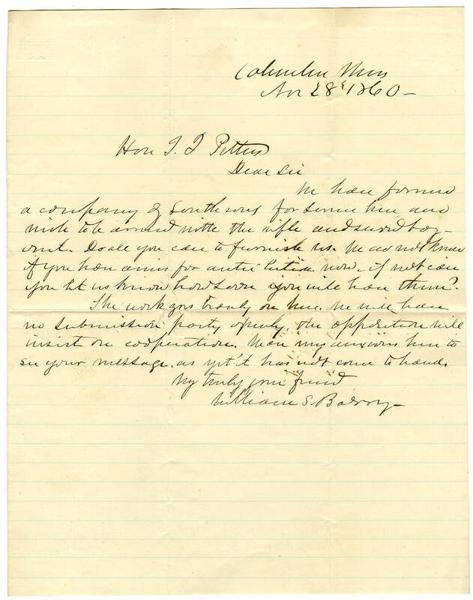 Columbus Miss
Nov 28th 1860 –
Hon J. J. Pettus
Dear Sir
We have formed
a company of Southrons for service here and
wish to be armed with the rifle and sword bay-
onet. Do all you can to furnish us. We do not know
if you have arms for distribution now. if not can
you let us know how soon you will have them?
The work goes bravely on here. We will have
no submission party openly. the opposition will
insist on cooperation. We are very anxious here to
see your message. as yet it has not come to hand.
Very truly your friend
William S. Barry –